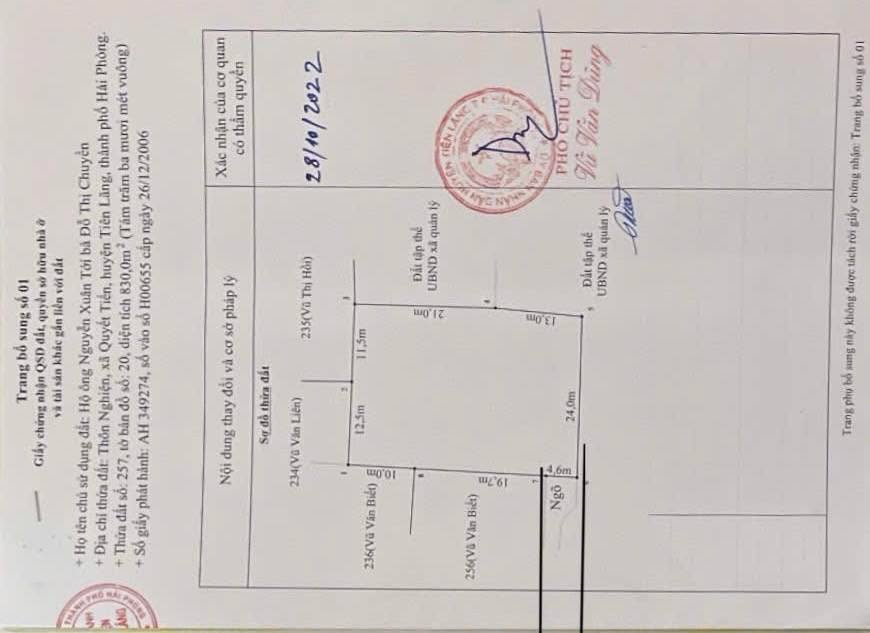 Trang bổ sung số 01
Giấy chứng nhận QSD đất, quyền sở hữu nhà ở
và tài sản khác gắn liền với đất
+ Họ tên chủ sử dụng đất: Hộ ông Nguyễn Xuân Tới bà Đỗ Thị Chuyển
+ Địa chỉ thửa đất: Thôn Nghiện, xã Quyết Tiến, huyện Tiên Lãng, thành phố Hải Phòng.
+ Thửa đất số: 257, tờ bản đồ số: 20, diện tích 830,0m² (Tám trăm ba mươi mét vuông)
+ Số giấy phát hành: AH 349274, số vào sổ H00655 cấp ngày 26/12/2006
THÀNH PHỐ HẢI PHÒNG
Nội dung thay đổi và cơ sở pháp lý
Xác nhận của cơ quan
có thẩm quyền
Sơ đồ thửa đất
28/10/2022
234(Vũ Văn Liên)
235(Vũ Thị Hỏi)
1
2
3
12,5m
11,5m
236(Vũ Văn Biết)
10,0m
21,0m
Đất tập thể
UBND xã quản lý
8
4
256(Vũ Văn Biết)
19,7m
13,0m
7
4,6m
Ngõ
24,0m
6
5
Đất tập thể
UBND xã quản lý
ỦY BAN NHÂN DÂN HUYỆN TIÊN LÃNG T.P HẢI PHÒNG
PHÓ CHỦ TỊCH
Vũ Văn Dũng
Trang phụ bổ sung này không được tách rời giấy chứng nhận: Trang bổ sung số 01